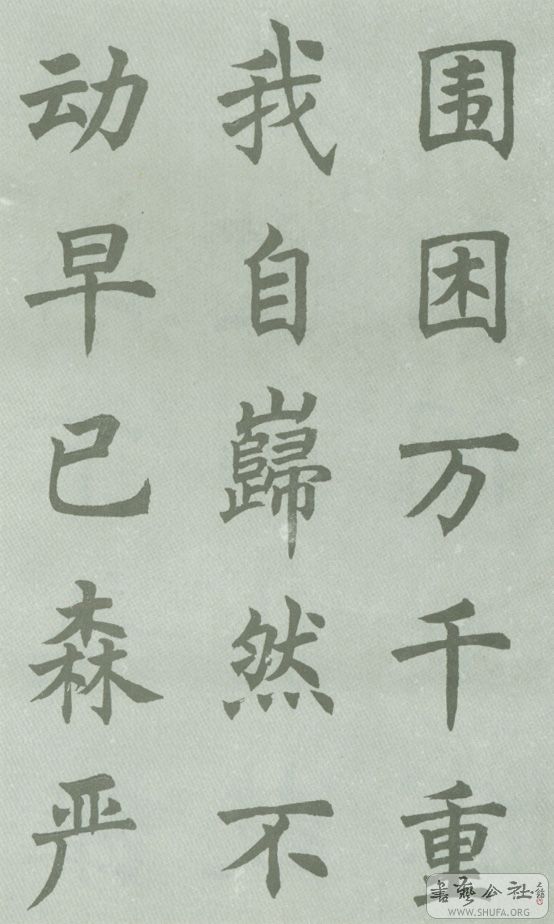 围困万千重
我自巋然不
动早已森严
書藝公社
WWW.SHUFA.ORG